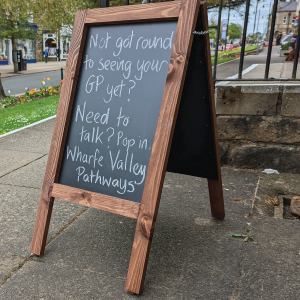 Not got round
to seeing your
GP yet?
Need to
talk? Pop in.
Wharfe Valley
Pathways